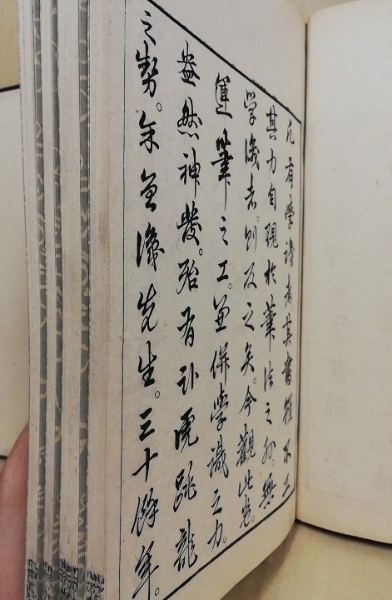 凡有學識者其書雖不工
其力自現於筆法之外。無
學識者。則反之矣。今觀此卷。
運筆之工。並併學識之力。
盎然神發。殆有臥虎跳龍
之勢。余並識先生。三十餘年。